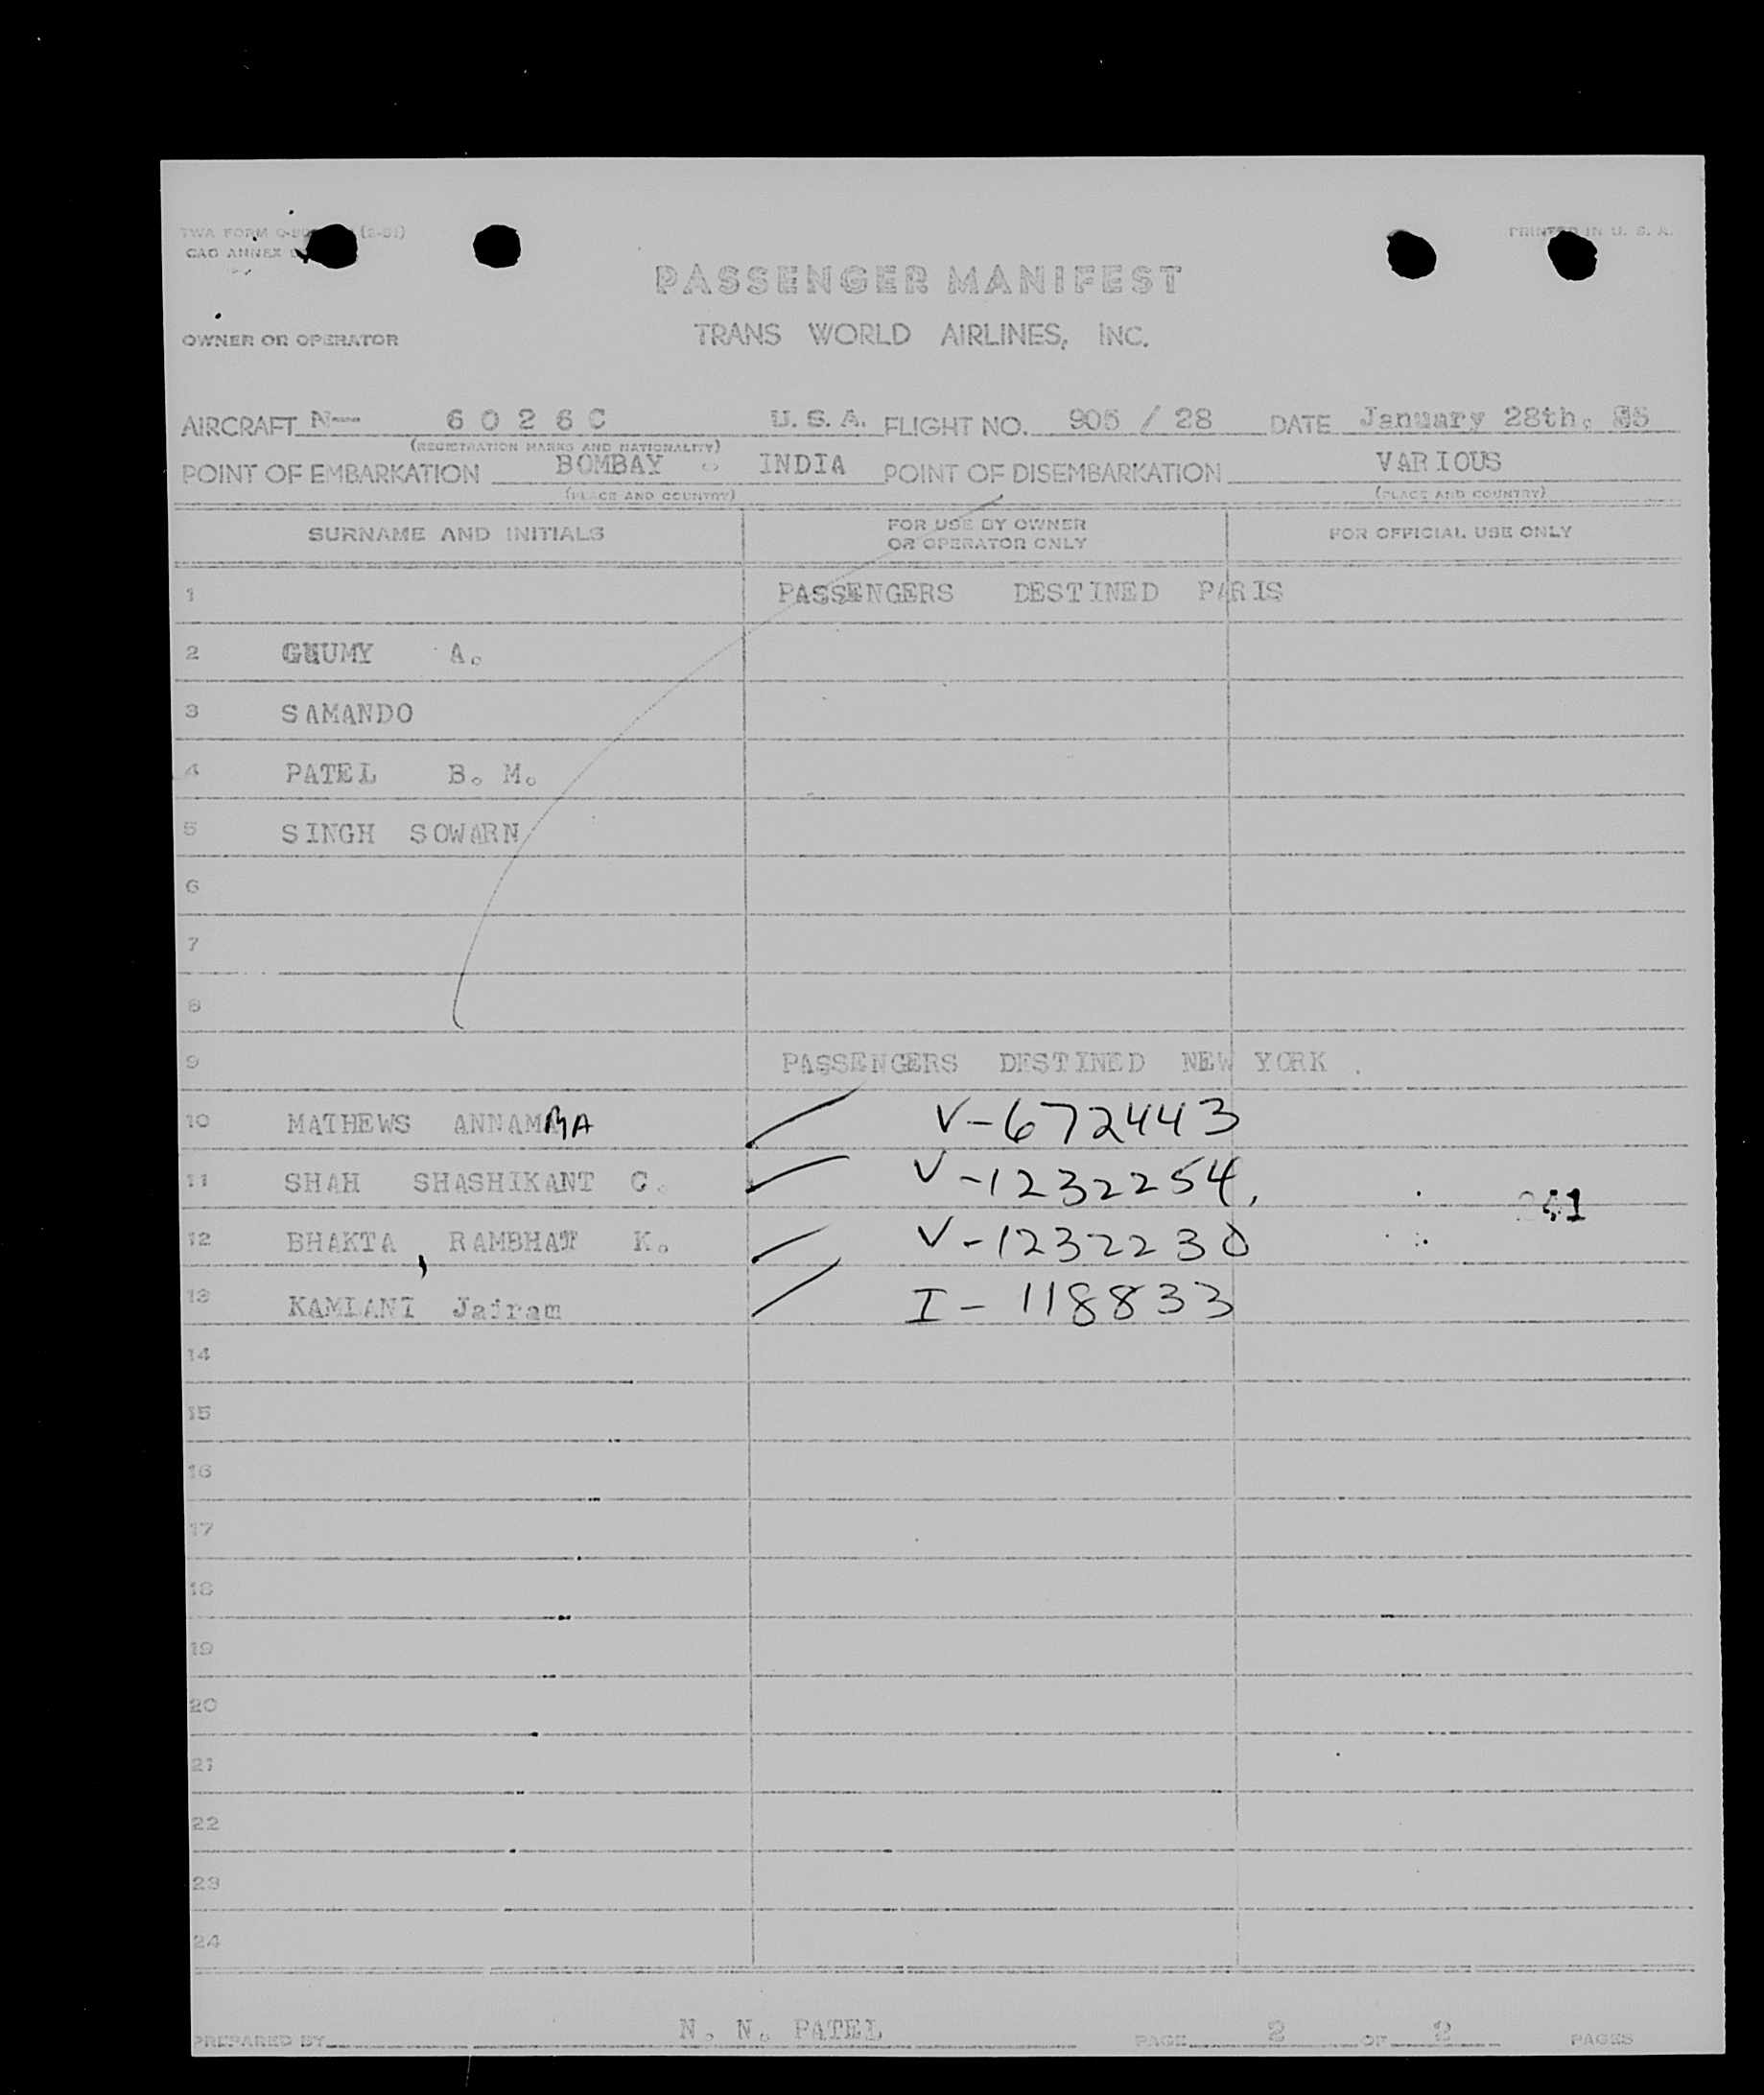 TWA FORM (2-51)
PRINTED IN U. S. A.
CAO ANNEX
PASSENGER MANIFEST
OWNER OR OPERATOR TRANS WORLD AIRLINES, INC.
AIRCRAFT N-- 6 0 2 6 C U. S. A. FLIGHT NO. 905 / 28 DATE January 28th.
(REGISTRATION MARKS AND NATIONALITY)
POINT OF EMBARKATION BOMBAY INDIA POINT OF DISEMBARKATION VARIOUS
(PLACE AND COUNTRY) (PLACE AND COUNTRY)
SURNAME AND INITIALS FOR USE BY OWNER OR OPERATOR ONLY FOR OFFICIAL USE ONLY
1 PASSENGERS DESTINED PARIS
2 A.
3 SAMANDO
4 PATEL B. M.
5 SINGH SOWARN
6
7
8
9 PASSENGERS DESTINED NEW YORK .
10 MATHEWS ANNAMMA V-672443
11 SHAH SHASHIKANT C. V-1232254,
241
12 BHAKTA , K. V-1232230
13 KAMLANI Jairam I - 118833
14
15
16
17
18
19
20
21
22
23
24
PREPARED BY N. N. PATEL PAGE 2 OF 2 PAGES